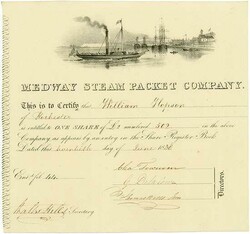 MEDWAY STEAM PACKET COMPANY.
This is to Certify that William Hopson
of Rochester
is entitled to ONE SHARE of £5 numbered 502 in the above
Company as appears by an entry in the Share Register Book
Dated this twentieth day of June 1836
Directors.
Secretary